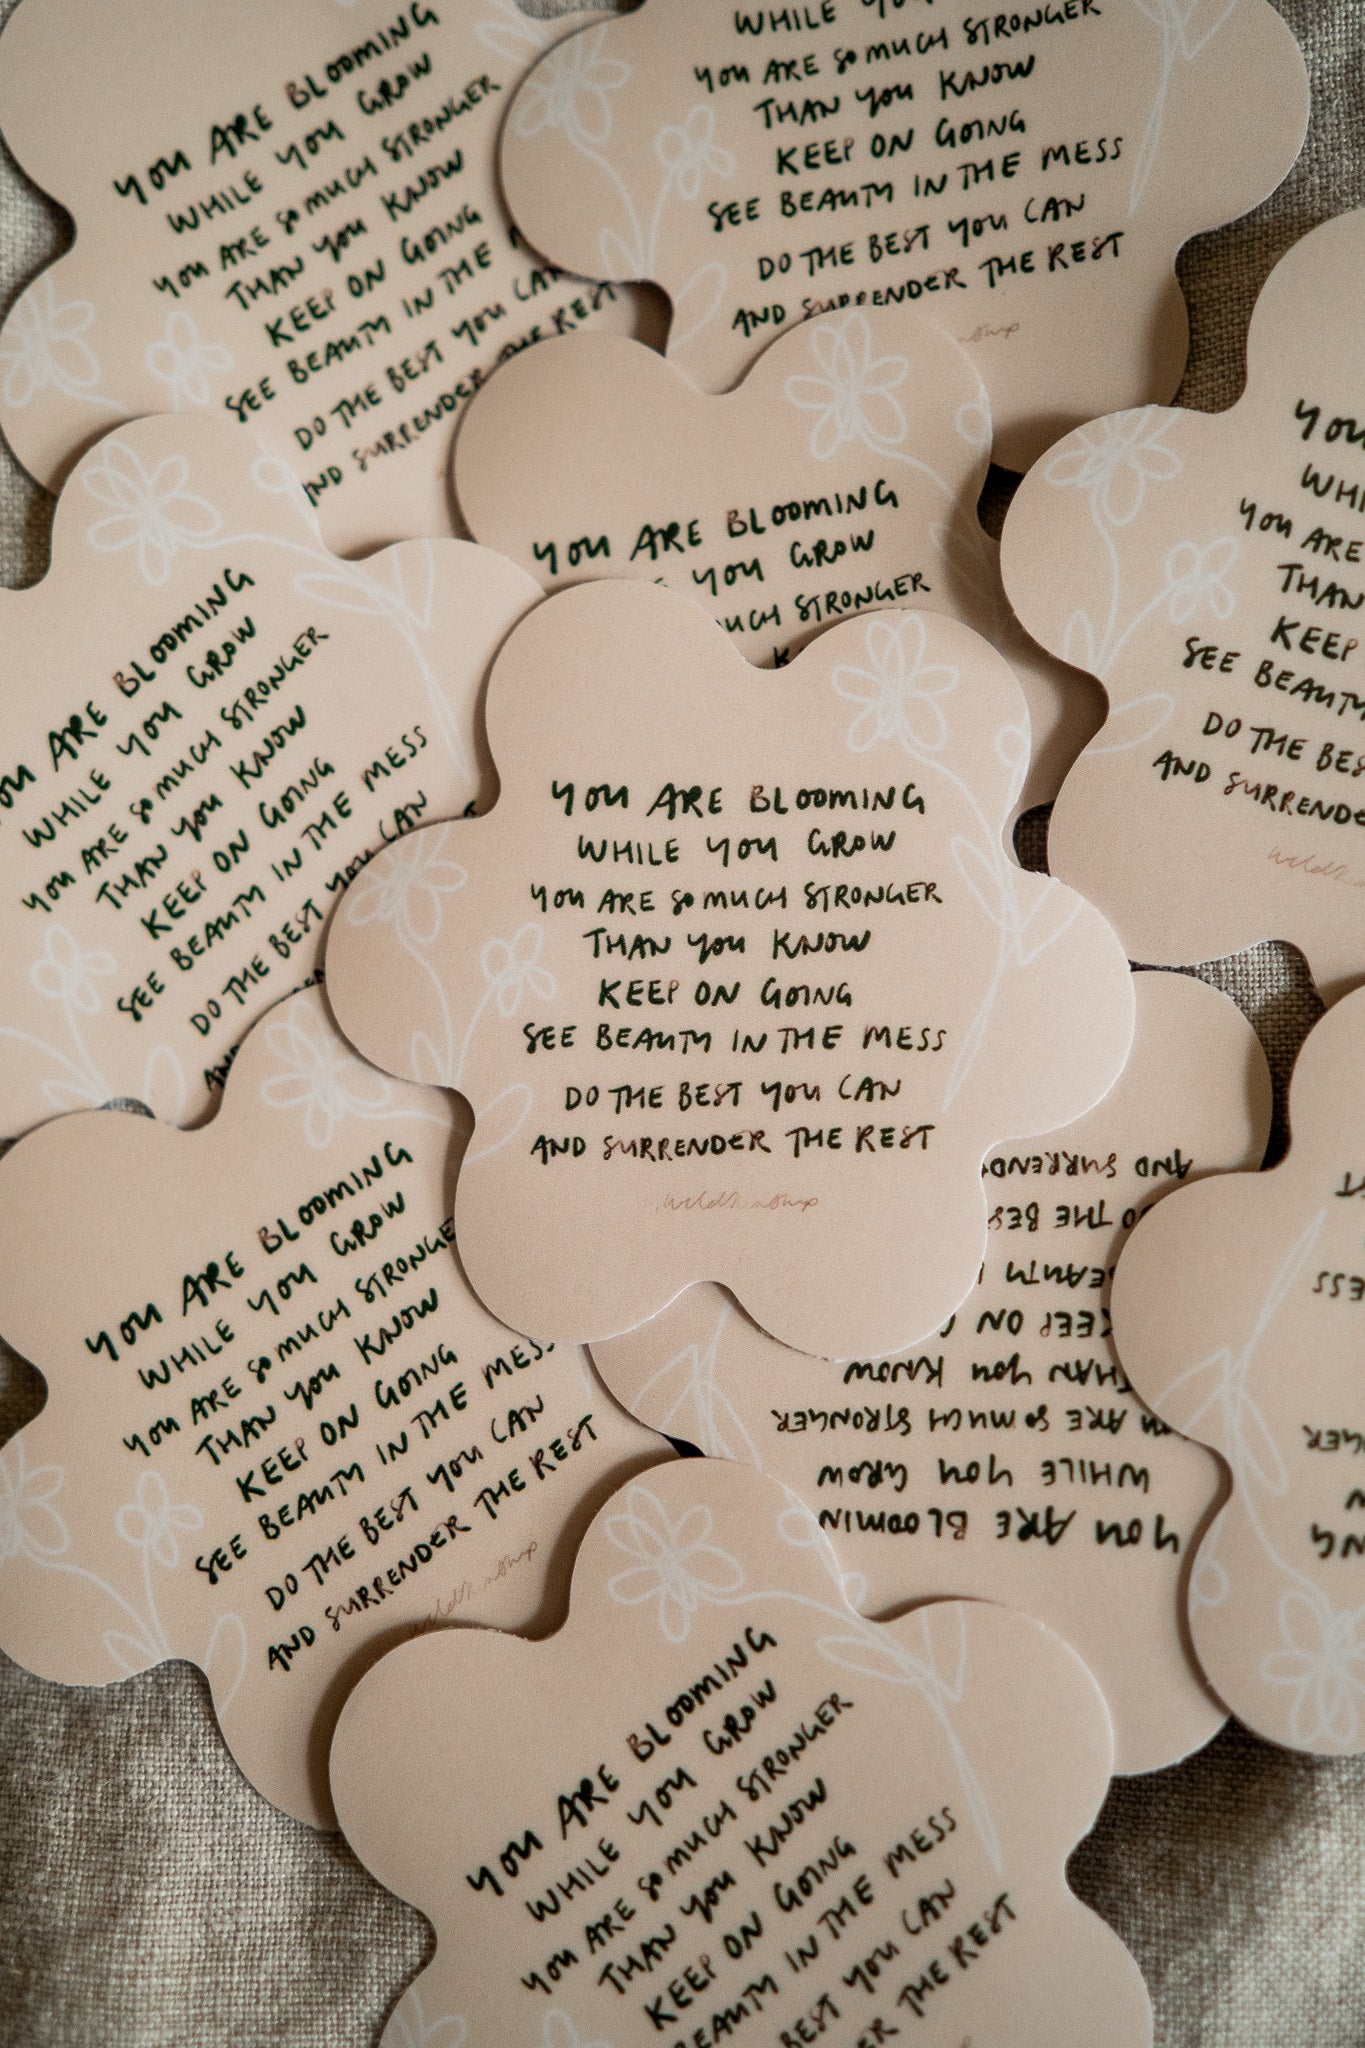 YOU ARE BLOOMING
WHILE YOU GROW
YOU ARE SO MUCH STRONGER
THAN YOU KNOW
KEEP ON GOING
SEE BEAUTY IN THE
DO THE BEST YOU CAN
AND SURRENDER THE REST
WHILE
YOU ARE SO MUCH STRONGER
THAN YOU KNOW
KEEP ON GOING
SEE BEAUTY IN THE MESS
DO THE BEST YOU CAN
AND SURRENDER THE REST
YOU ARE BLOOMING
YOU GROW
STRONGER
YOU
YOU ARE
THAN
KEEP
SEE BEAUTY
DO THE
AND
ARE BLOOMING
WHILE YOU GROW
YOU ARE SO MUCH STRONGER
THAN YOU KNOW
KEEP ON GOING
SEE BEAUTY IN THE MESS
DO THE BEST YOU CAN
YOU ARE BLOOMING
WHILE YOU GROW
YOU ARE SO MUCH STRONGER
THAN YOU KNOW
KEEP ON GOING
SEE BEAUTY IN THE MESS
DO THE BEST YOU CAN
AND SURRENDER THE REST
YOU ARE BLOOMING
WHILE YOU GROW
YOU ARE SO MUCH
THAN YOU KNOW
KEEP ON GOING
SEE BEAUTY IN THE
DO THE BEST YOU CAN
AND SURRENDER THE REST
YOU ARE
WHILE YOU GROW
ARE SO MUCH STRONGER
THAN YOU KNOW
KEEP ON
THE
AND
YOU ARE BLOOMING
WHILE YOU GROW
YOU ARE SO MUCH STRONGER
THAN YOU KNOW
KEEP ON GOING
BEAUTY IN THE MESS
BEST YOU CAN
THE REST